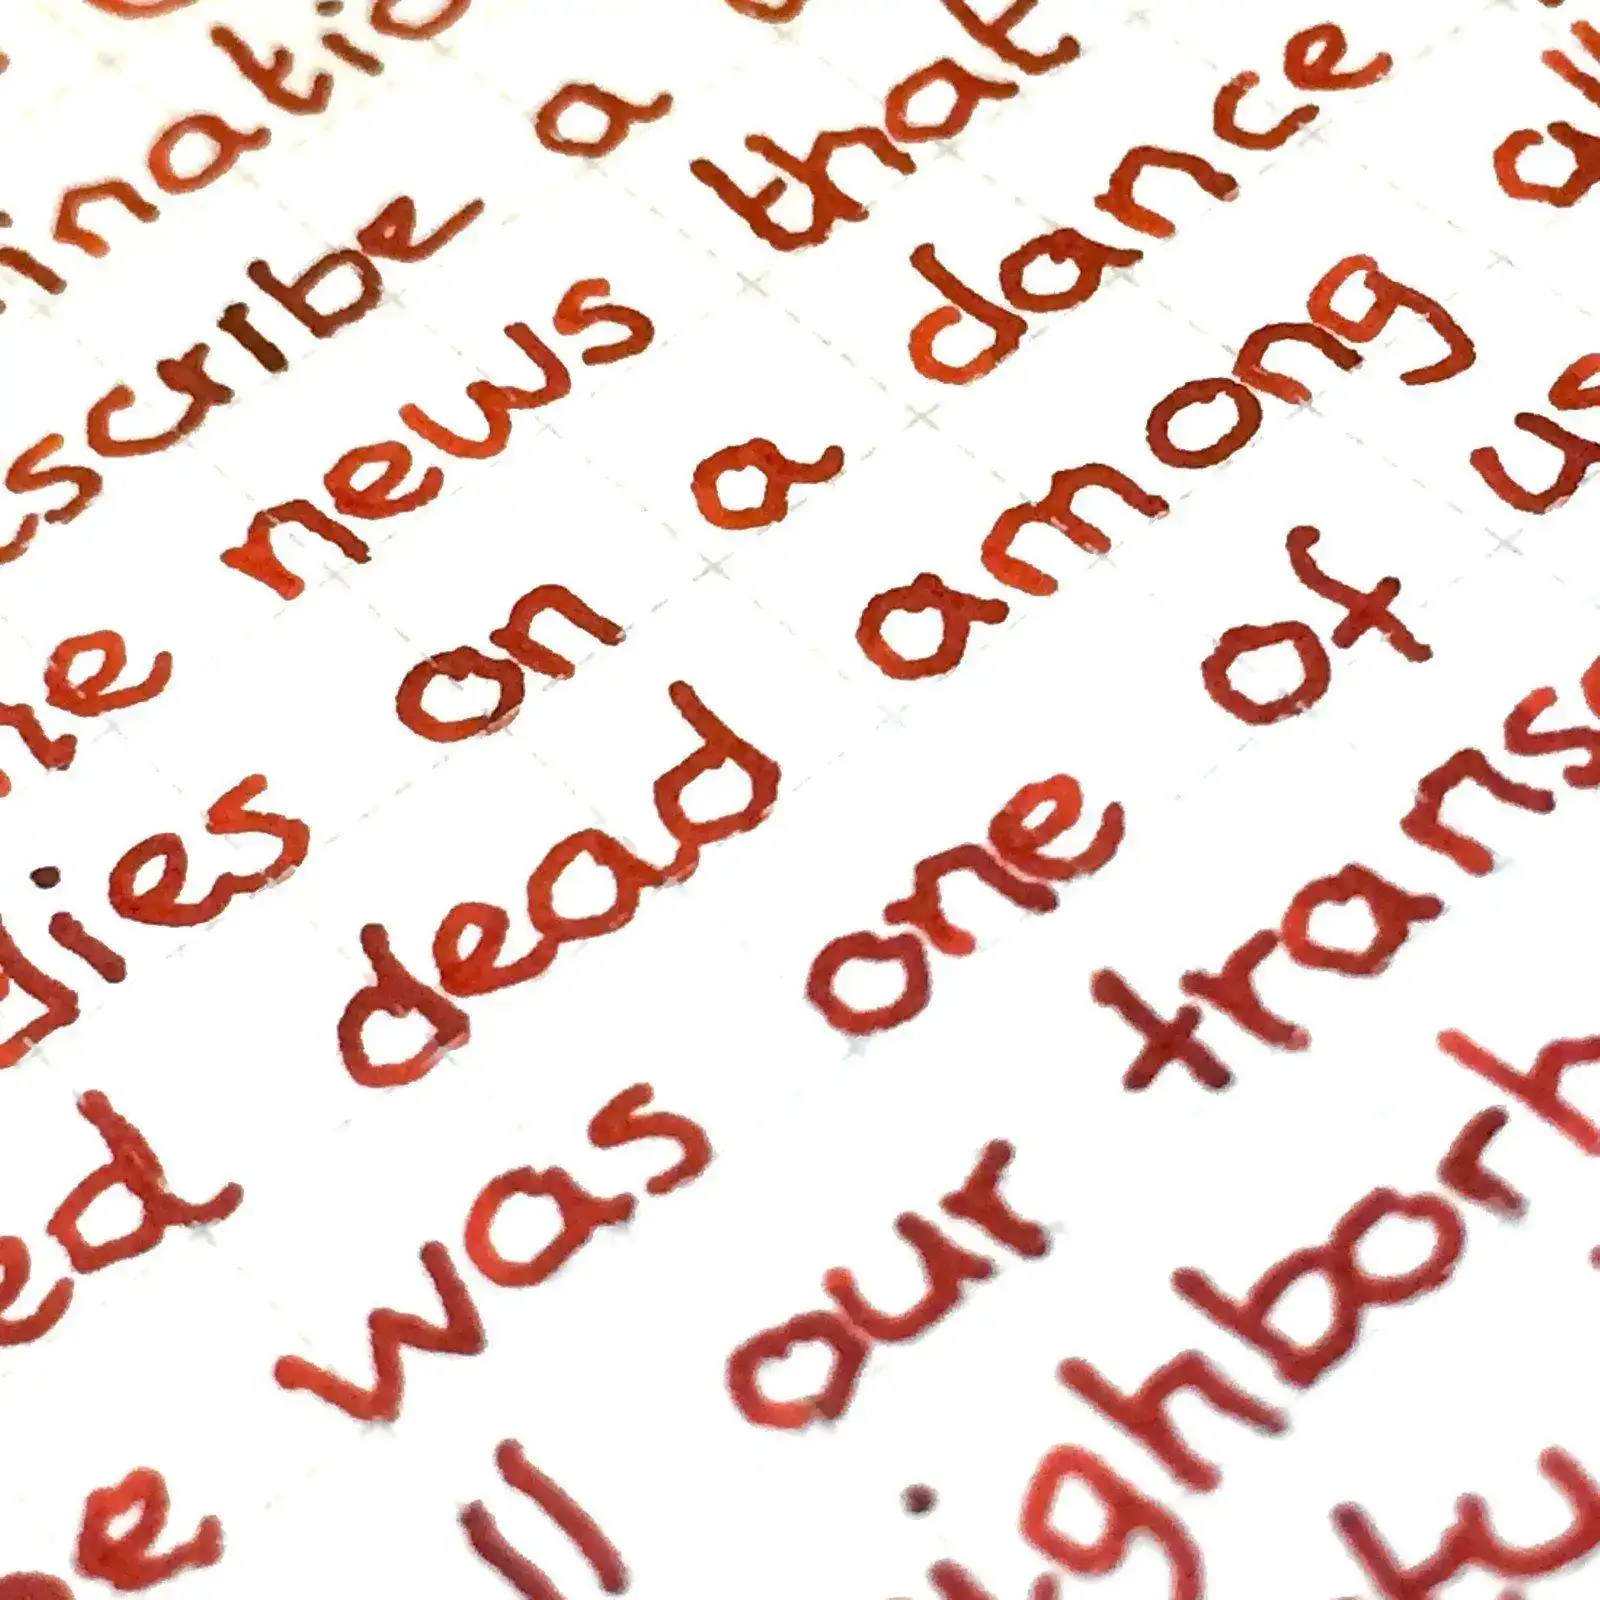 inatio
scribe a
he news that
dies on a dance
ed dead among
e was one of us
ll our trans
ighborh